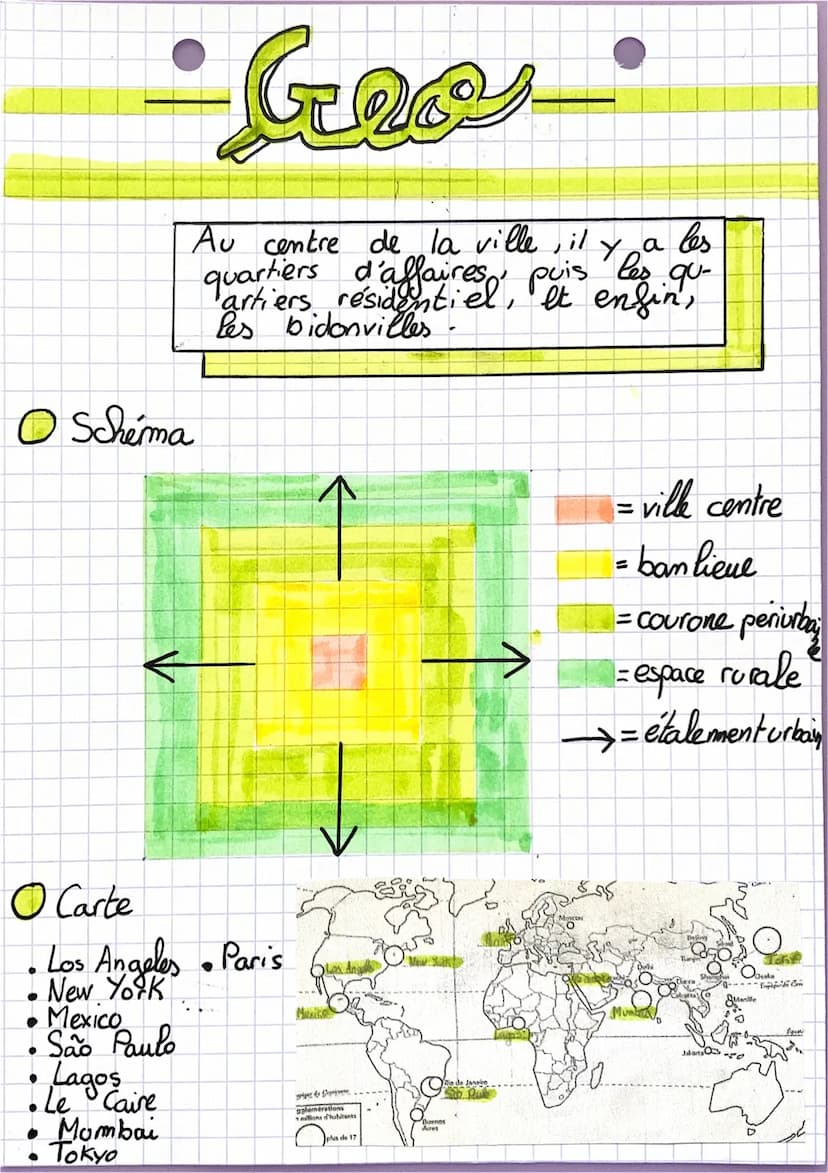 Geo
Au centre de la ville, il y a les
quartiers d'affaires, puis les qu-
artiers résidentiel, et enfin,
les bidonvilles.
Schéma
= ville centre
= banlieue
= courone périurbaine
= espace rurale
→ = étalement urbain
Carte
• Los Angeles • Paris
• New York
• Mexico
• São Paulo
• Lagos
• Le Caire
• Mumbai
• Tokyo
Moscou
Paris
Los Angeles
New York
Mexico
Lagos
Delhi
Dacca
Calcutta
Mumbai
Séoul
Shanghai
Osaka
Manille
Jakarta
Rio de Janeiro
São Paulo
Buenos
Aires
millions d'habitants
plus de 17